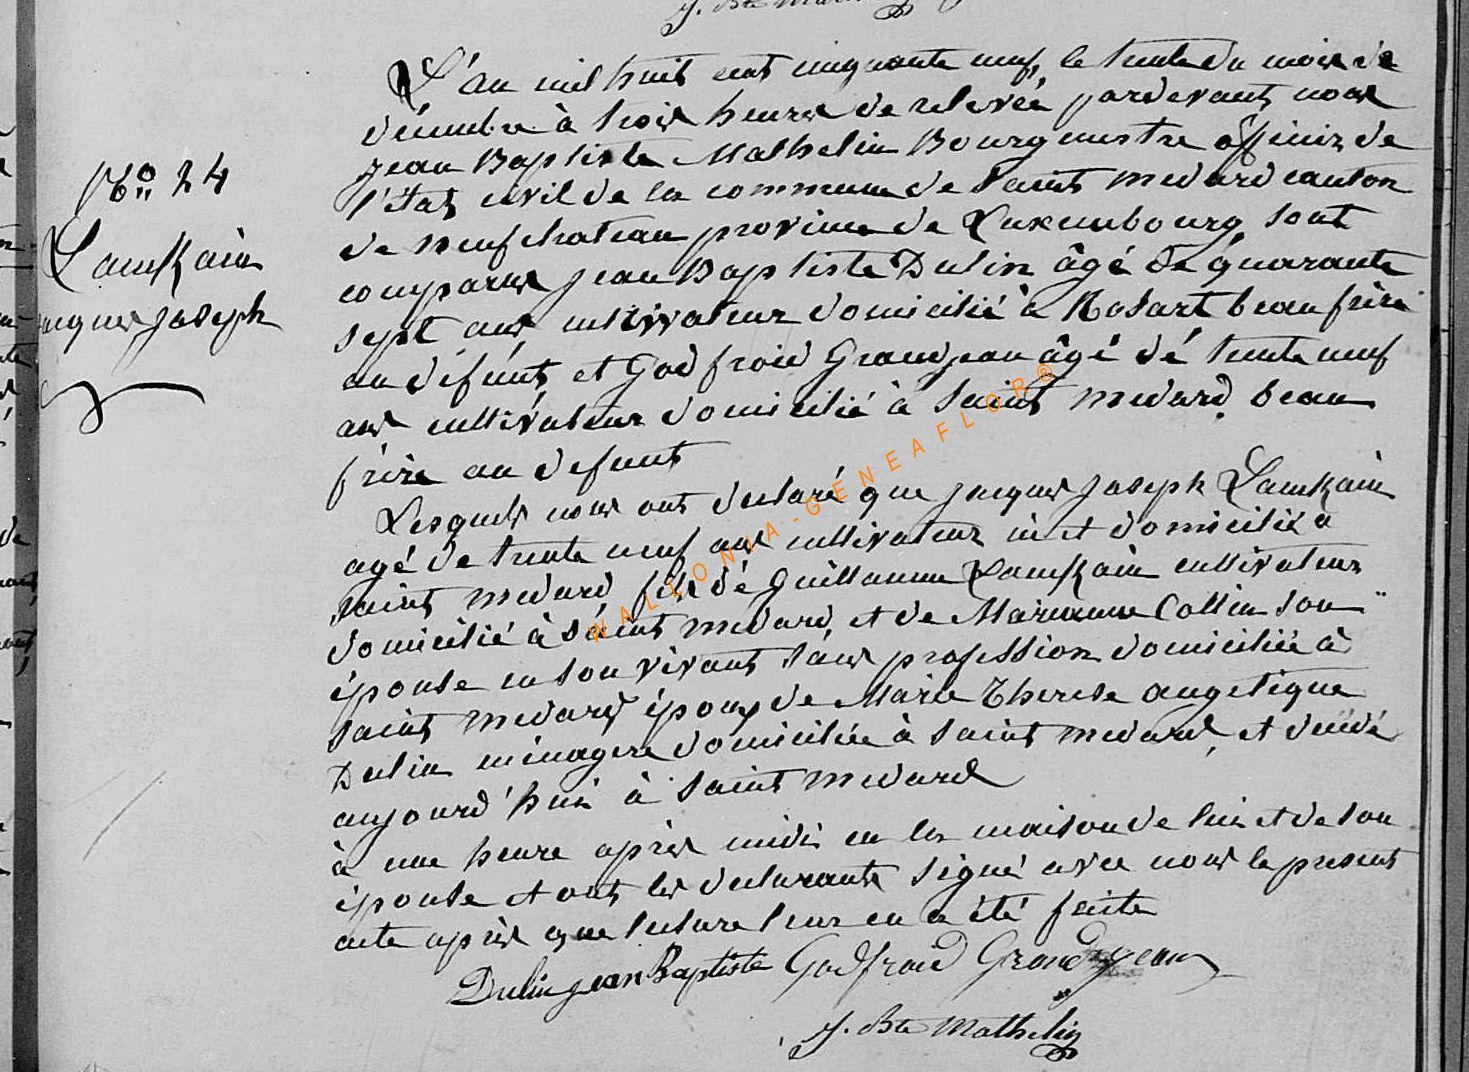 J. Bte Mathelin
L'an mil huit cent cinquante neuf, le trente du mois de
décembre à trois heures de relevée pardevant nous
Jean Baptiste Mathelin Bourgmestre officier de
l'état civil de la commune de Saint Medard canton
de neufchateau province de Luxembourg sont
comparus Jean Baptiste Dulin âgé de quarante
sept ans cultivateur domicilié à Rosart beau frère
au défunt et Godfroid Grandjean âgé dé trente neuf
ans cultivateur domicilié à Saint Medard, beau
frère au defunt
Lesquels nous ont declaré que Jacques Joseph Lamkain
agé de trente neuf ans cultivateur né et domicilié à
saint medard fils de Guillaume Lamkain cultivateur
domicilié à saint medard et de Marianne Collin son
épouse en son vivant sans profession domiciliée à
saint medard époux de Marie Therese angelique
Dulin ménagere domiciliée à saint medard, et décédé
aujourd'hui à saint medard
à une heure après midi en la maison de lui et de son
épouse et ont les declarants signé avec nous le present
acte après que lecture leur en a été faite
Dulin jean Baptiste Godfroid Grandjean
J. Bte Mathelin
No 24
Lamkain
Jacques Joseph
WALLONIA-GENEAFLOR®